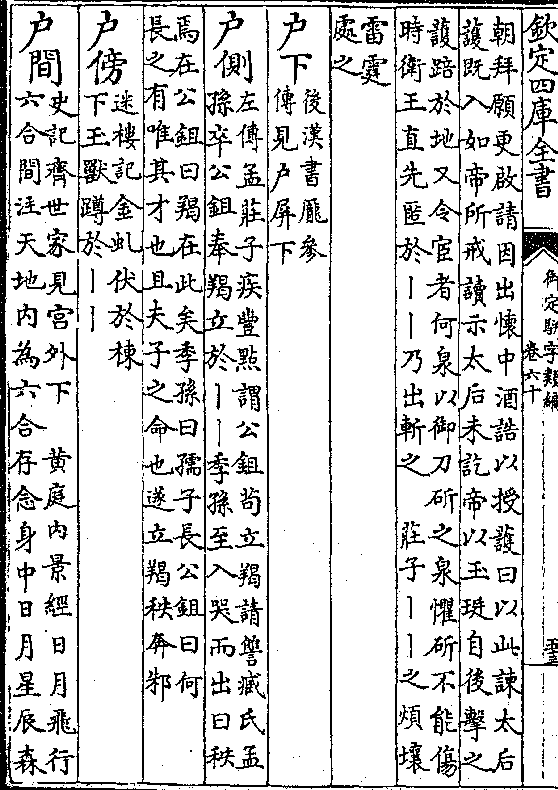 欽定四庫全書
御定駢字類編
卷六十
朝拜願更啟請因出懷中酒誥以授護曰以此諫太后
護既入如帝所戒讀示太后未訖帝以玉珽自後擊之
護踣於地又令宦者何泉以御刀斫之泉懼斫不能傷
時衛王直先匿於丨丨乃出斬之　莊子丨丨之煩壤
雷霆
處之
户下
後漢書龐參
傳見户屏下
户側
左傳孟莊子疾豐點謂公鉏苟立羯請讐臧氏孟
孫卒公鉏奉羯立於丨丨季孫至入哭而出曰秩
焉在公鉏曰羯在此矣季孫曰孺子長公鉏曰何
長之有唯其才也且夫子之命也遂立羯秩奔邾
户傍
迷樓記金虬伏於棟
下玉獸蹲於丨丨
户間
史記齊世家見宮外下　黄庭内景經日月飛行
六合間注天地内為六合存念身中日月星辰森